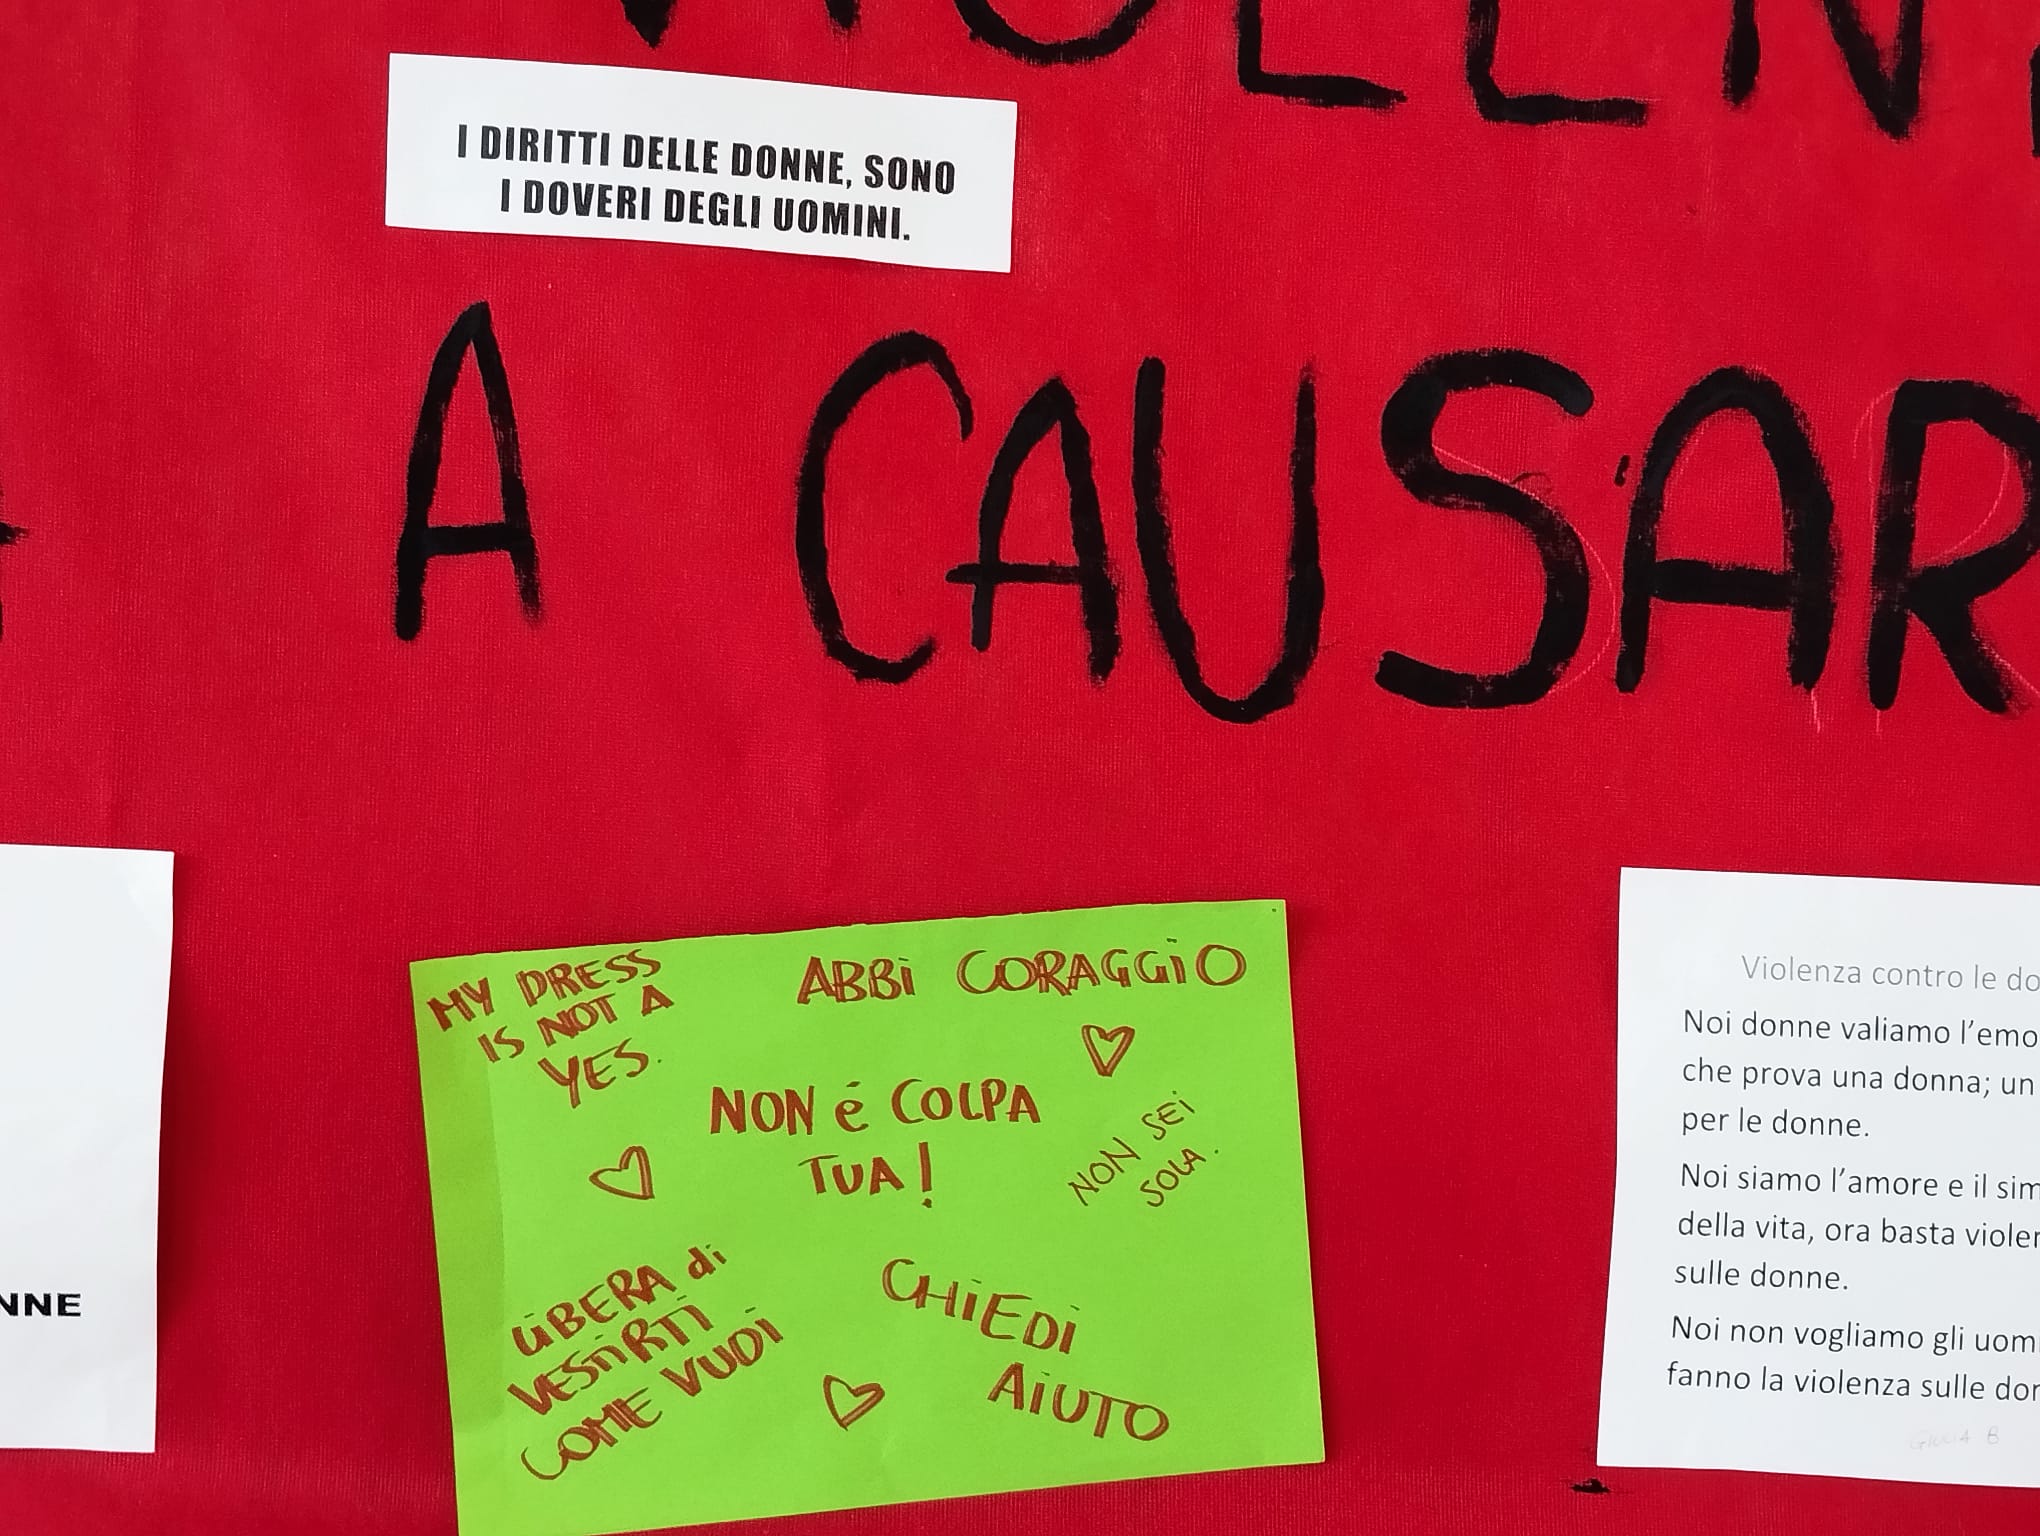 VIOLEN
I DIRITTI DELLE DONNE, SONO
I DOVERI DEGLI UOMINI.
A CAUSAR
NNE
MY DRESS
IS NOT A
YES.
ABBi CORAGGiO
NON é COLPA
TUA!
NON SEi
SOLA.
LiBERA di
VESTiRTi
COME VUOi
CHiEDi
AiUTO
Violenza contro le do
Noi donne valiamo l'emo
che prova una donna; un
per le donne.
Noi siamo l'amore e il sim
della vita, ora basta violen
sulle donne.
Noi non vogliamo gli uom
fanno la violenza sulle don
GIULIA B